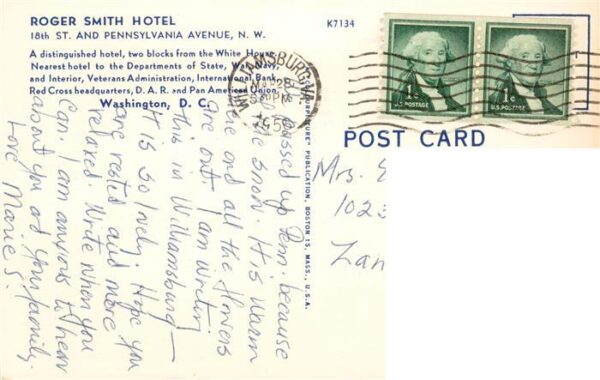 ROGER SMITH HOTEL
18th ST. AND PENNSYLVANIA AVENUE, N. W.
A distinguished hotel, two blocks from the White House.
Nearest hotel to the Departments of State, War, Navy,
and Interior, Veterans Administration, International Bank,
Red Cross headquarters, D. A. R. and Pan American Union.
Washington, D. C.
K7134
WILLIAMSBURG, VA.
PM
1958
1¢ 1¢
U.S. POSTAGE U.S. POSTAGE
POST CARD
PUBLICATION, BOSTON 15, MASS., U.S.A.
passed up Penn. because
the snow. It is warm
here and all the flowers
are out. I am writing
this in Williamsburg —
It is so lovely. Hope you
are rested and more
relaxed. Write when you
can. I am anxious to hear
about you and your family.
Love Marie S.
Mrs.
102